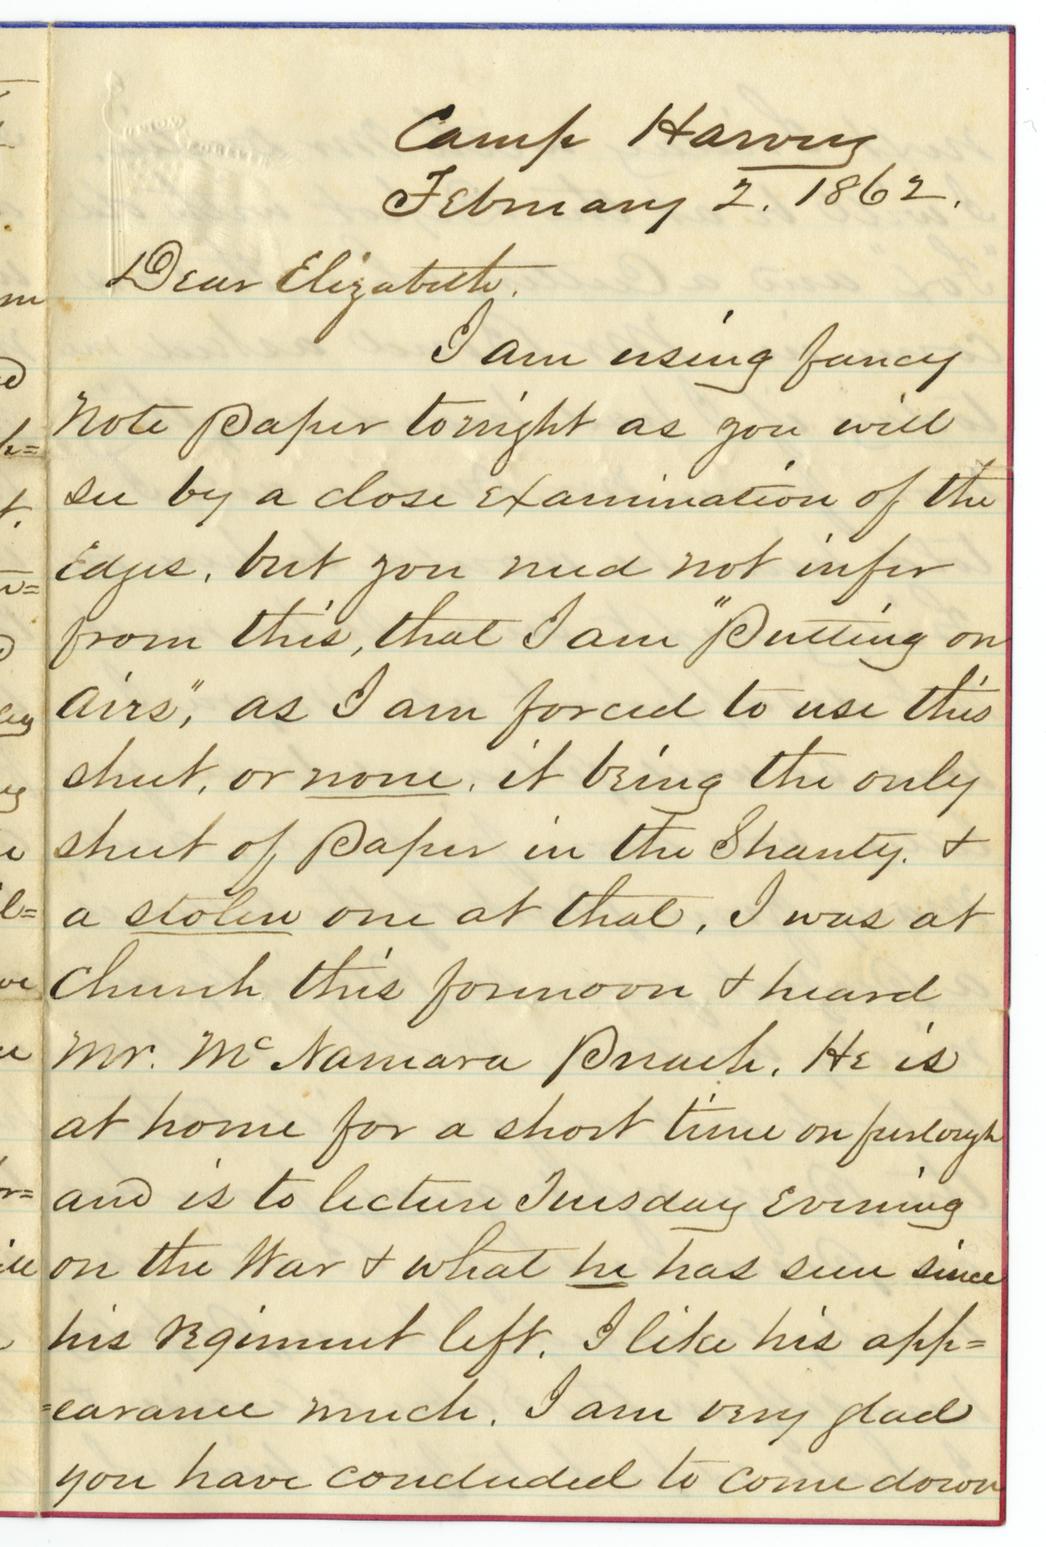 Camp Harvey
February 2. 1862.
Dear Elizabeth.
I am using fancy
Note Paper tonight as you will
see by a close examination of the
Edges, but you need not infer
from this, that I am "Putting on
Airs", as I am forced to use this
sheet, or none, it being the only
sheet of Paper in the Shanty. &
a stolen one at that, I was at
Church this forenoon & heard
Mr. McNamara Preach. He is
at home for a short time on furlough
and is to lecture Tuesday Evening
on the War & what he has seen since
his Regiment left. I like his app=
=earance much. I am very glad
you have concluded to come down